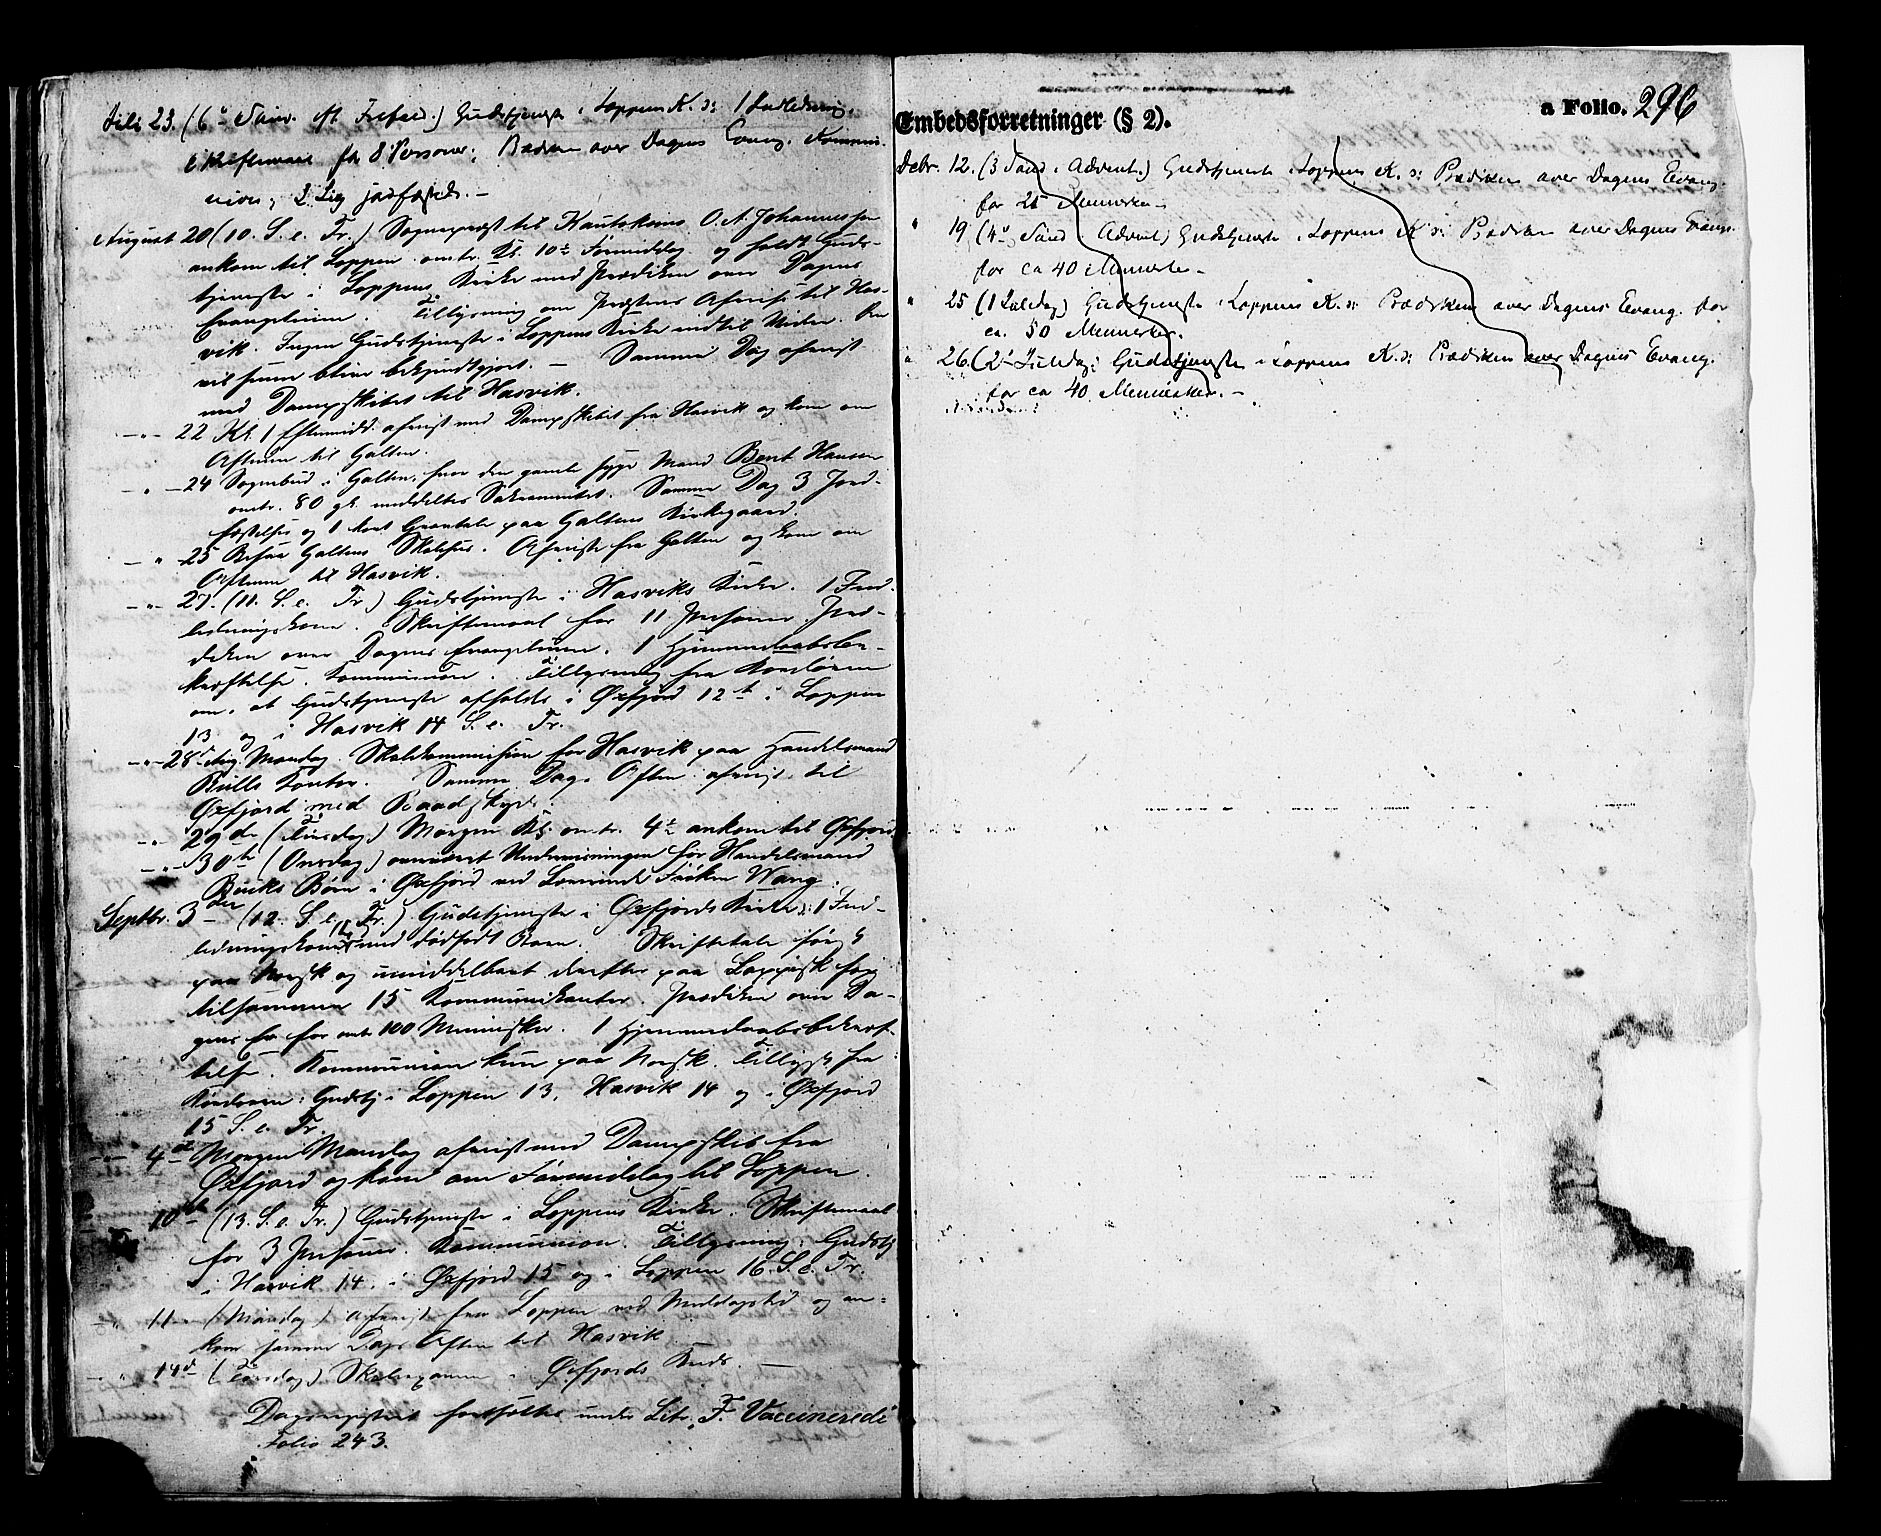 Juli 23. (6te Sønd. eft. Trefold.) Gudstjeneste i Loppens K. ɔ: 1 Indledning,
Skriftemaal for 8 Personer, Prædiken over Dagens Evang. Kommu-
nion, 2 Lig jordfæstede. -
August 20 (10. S. e. Tr.) Sognepræst til Kautokeino O. A. Johannessen
ankom til Loppen omtr. Kl. 10½ Formiddag og holdt Guds-
tjeneste i Loppens Kirke med Prædiken over Dagens
Evangelium. Tillysning om Præstens Afreise til Has-
vik. Ingen Gudstjeneste i Loppens Kirke indtil videre. Den
vil senere blive bekjendtgjort. - Samme Dag afreist
med Dampskibet til Hasvik.
-"- 22 Kl. 1 Eftermidd. afreist med Dampskibet fra Hasvik og kom om
Aftenen til Galten.
-"- 24 Sognebud i Galten, hvor den gamle syge Mand Bent Hansen
omtr. 80 gl. meddeltes Sakramentet. Samme Dag 3 Jord-
fæstelser og 1 kort Gravtale paa Galtens Kirkegaard.
-"- 25 Besaa Galtens Skolehus. Afreiste fra Galten og kom om
Aftenen til Hasvik.
-"- 27. (11. S. e. Tr.) Gudstjeneste i Hasviks Kirke. 1 Ind-
ledningskone. Skriftemaal for 11 Personer. Præ-
diken over Dagens Evangelium. 1 Hjemmedaabsbe-
kræftelse. Kommunion. Tillysning fra Kordøren
om, at Gudstjeneste afholdes i Øxfjord 12te i Loppen
13 og i Hasvik 14 S. e. Tr.
-"- 28d Aug. Mandag. Skolekommission for Hasvik paa Handelsmand
Kontor. Samme Dags Aften afreist til
Øxfjord med Baadskyds.
-"- 29de (Tirsdag) Morgen Kl. omtr. 4½ ankom til Øxfjord
-"- 30te (Onsdag) overværet Undervisningen for Handelsmand
Bucks Børn i Øxfjord ved Lærerinde Frøken Wang.
Septbr. 3die (12. S. e. Tr.) Gudstjeneste i Øxfjords Kirke ɔ: 1 Ind-
ledningskone med dødfødt Barn. Skriftetale først
paa Norsk og umiddelbart derefter paa Lappisk for
tilsammen 15 Kommunikanter. Prædiken over Da-
gens Ev. for omtr. 100 Mennisker. 1 Hjemmedaabsbekræf-
telse. Kommunion kun paa Norsk. Tillyst fra
Kordøren: Gudstj. i Loppen 13, Hasvik 14 og i Øxfjord
15 S. e. Tr.
-"- 4de Morgen Mandag afreist med Dampskib fra
Øxfjord og kom om Formiddag til Loppen.
10de (13. S. e. Tr.) Gudstjeneste i Loppens Kirke. Skriftemaal
for 3 Personer. Kommunion. Tillysning: Gudstj.
i Hasvik 14. i Øxfjord 15 og i Loppen 16. S. e. Tr.
-"- 11 (Mandag) Afreist fra Loppen ved Middagstid og an-
kom samme Dags Aften til Hasvik
-"- 14d (Torsdag) Skoleexamen i Øxfjords Kreds. -
Dagregisteret fortsættes under Litr. F. Vaccinerede
Folio 243.
Embedsforretninger (§ 2).
a Folio. 296
Debr. 12. (3 Sønd. i Advent.) Gudstjeneste i Loppens K. ɔ: Prædiken over Dagens Evang.
for 25 Mennesker -
" 19 (4de Sønd. i Advent) Gudstjeneste i Loppens K. ɔ: Prædiken over Dagens Evang.
for ca 40 Mennesker -
" 25 (1 Juledag) Gudstjeneste i Loppens K. ɔ: Prædiken over Dagens Evang. for
ca. 50 Mennesker.
" 26. (2 Juledag) Gudstjeneste i Loppens K. ɔ: Prædiken over Dagens Evang.
for ca 40 Mennesker. -